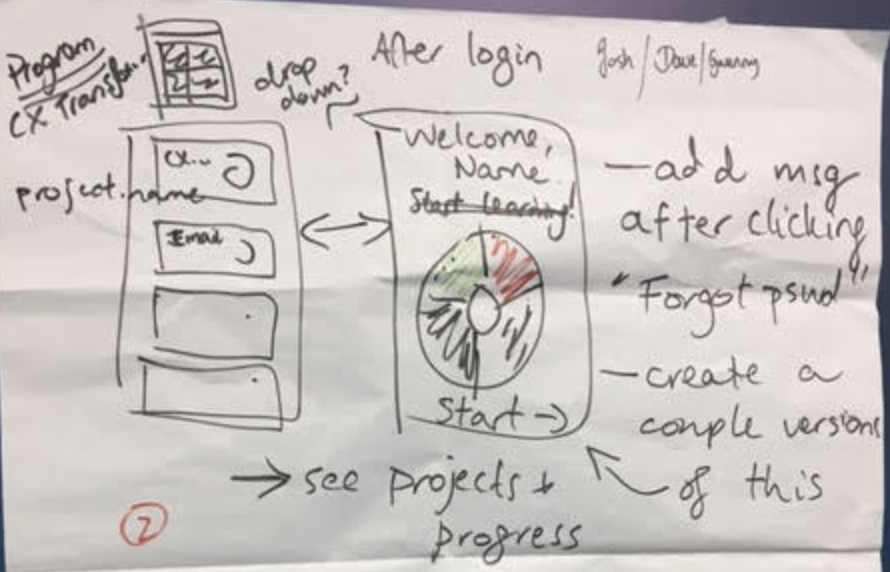 Program
CX Transfo
drop
down?
After login
Josh / Dave /
project.name
CX...
Email
Welcome,
Name.
Start learning!
Start →
— add msg
after clicking
"Forgot pswd"
— create a
couple versions
of this
→ see projects +
progress
2